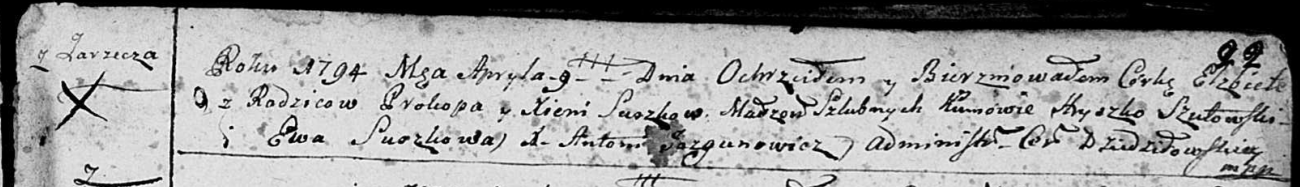 99
z Zarzecza
Roku 1794 Mca Apryla 9 Dnia Ochrzciłem y Bierzmowałem Corkę Elzbietę
z Rodzicow Prokopa y Xieni Suszkow. Małżow Szlubnych Kumowie Hryszko Szutowski
i Ewa Suszkowa) X. Antoni Jazgunowicz) Administr. Cer. Dziedziłowskiey
mpp
2